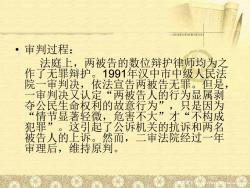 • 审判过程：
法庭上，两被告的数位辩护律师均为之
作了无罪辩护。1991年汉中市中级人民法
院一审判决，依法宣告两被告无罪。但是，
一审判决又认定“两被告人的行为显属剥
夺公民生命权利的故意行为”，只是因为
“情节显著轻微，危害不大”才“不构成
犯罪”。这引起了公诉机关的抗诉和两名
被告人的上诉。然而，二审法院经过一年
审理后，维持原判。